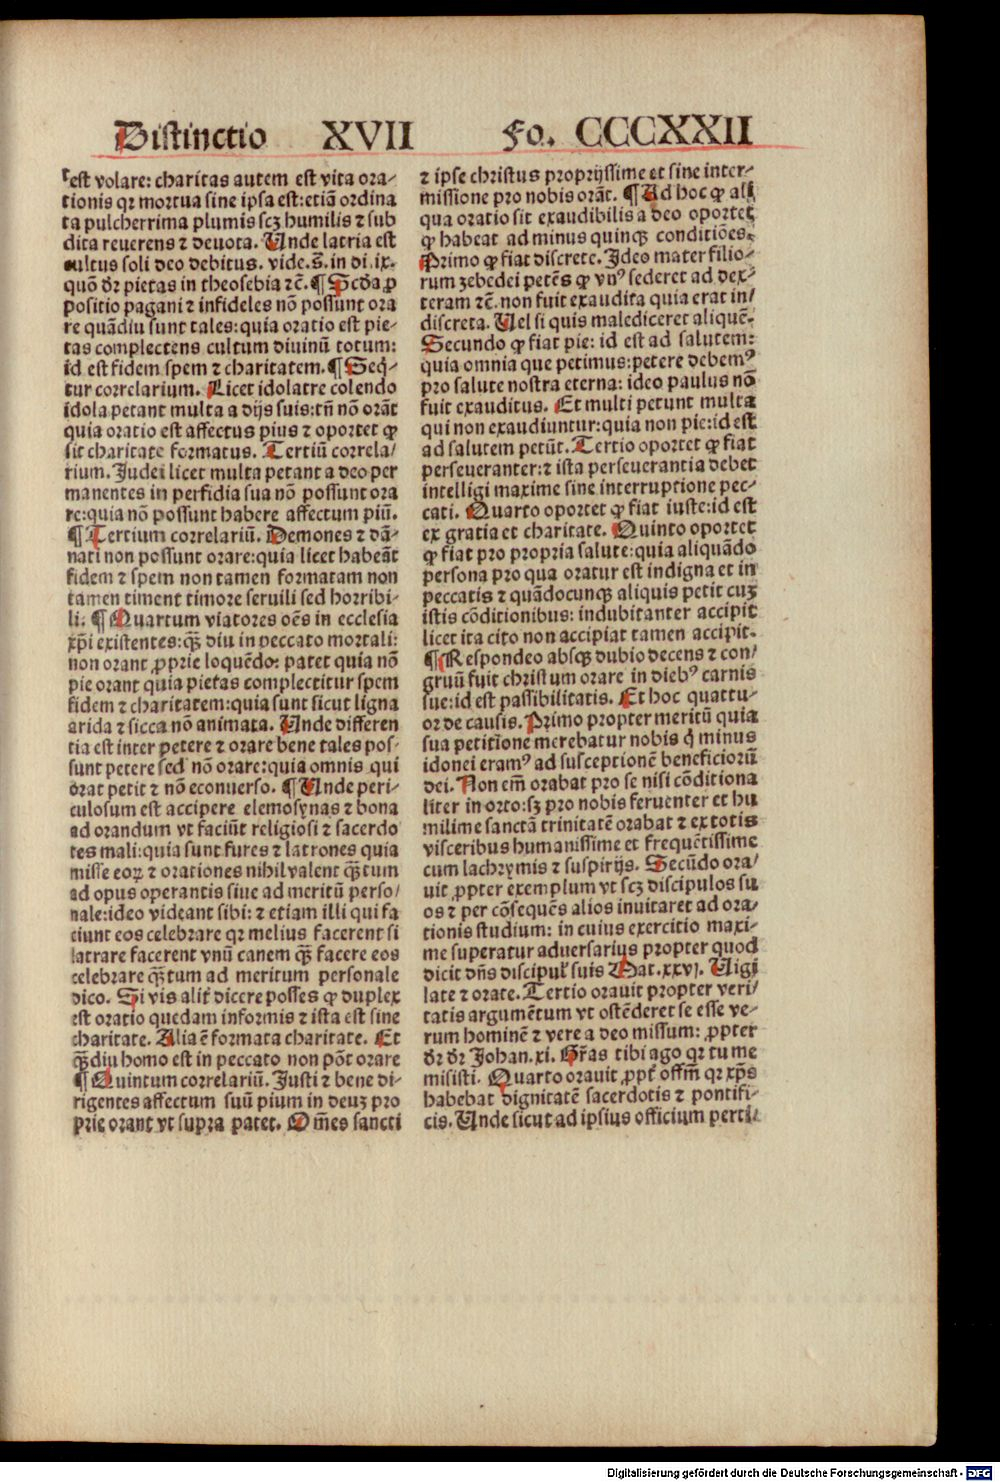 Distinctio XVII Fo. CCCXXII
est volare: charitas autem est vita ora-
tionis qr mortua sine ipsa est: etiã ordina
ta pulcherrima plumis scʒ humilis ⁊ sub
dita reuerens ⁊ deuota. Unde latria est
cultus soli deo debitus. vide. s̃. in di. ix.
quõ dr̃ pietas in theosebia ⁊c̃. ¶ Scd̃a ꝓ
positio pagani ⁊ infideles nõ possunt ora
re quãdiu sunt tales: quia oratio est pie-
tas complectens cultum diuinũ totum:
id est fidem spem ⁊ charitatem. ¶ Seq̃-
tur correlarium. Licet idolatre colendo
idola petant multa a dijs suis: tñ nõ orãt
quia oratio est affectus pius ⁊ oportet ꝙ
sit charitate formatus. Tertiũ correla/
rium. Judei licet multa petant a deo per
manentes in perfidia sua nõ possunt ora
re: quia nõ possunt habere affectum piũ.
¶ Tertium correlariũ. Demones ⁊ dã-
nati non possunt orare: quia licet habeãt
fidem ⁊ spem non tamen formatam non
tamen timent timore seruili sed horribi-
li. ¶ Quartum viatores oẽs in ecclesia
xp̃i existentes: qʒ̃ diu in peccato mortali:
non orant ꝓprie loquẽdo: patet quia nõ
pie orant quia pietas complectitur spem
fidem ⁊ charitatem: quia sunt sicut ligna
arida ⁊ sicca nõ animata. Unde differen
tia est inter petere ⁊ orare bene tales pos-
sunt petere sed nõ orare: quia omnis qui
orat petit ⁊ nõ econuerso. ¶ Unde peri-
culosum est accipere elemosynas ⁊ bona
ad orandum vt faciũt religiosi ⁊ sacerdo
tes mali: quia sunt fures ⁊ latrones quia
misse eoꝝ ⁊ orationes nihil valent qʒ̃tum
ad opus operantis siue ad meritũ perso/
nale: ideo videant sibi: ⁊ etiam illi qui fa
ciunt eos celebrare qr melius facerent si
latrare facerent vnũ canem qʒ̃ facere eos
celebrare qʒ̃tum ad meritum personale
dico. Si vis alit̃ dicere posses ꝙ duplex
est oratio quedam informis ⁊ ista est sine
charitate. Alia ẽ formata charitate. Et
qʒ̃diu homo est in peccato non põt orare
¶ Quintum correlariũ. Justi ⁊ bene di-
rigentes affectum suũ pium in deuʒ pro
prie orant vt supra patet. Om̃es sancti
⁊ ipse christus proprijssime et sine inter-
missione pro nobis orãt. ¶ Ad hoc ꝙ ali
qua oratio sit exaudibilis a deo oportet
ꝙ habeat ad minus quinqʒ conditiões.
Primo ꝙ fiat discrete. Ideo mater filio-
rum zebedei petẽs ꝙ vnꝰ sederet ad dex-
teram ⁊c̃. non fuit exaudita quia erat in/
discreta. Uel si quis malediceret aliquẽ.
Secundo ꝙ fiat pie: id est ad salutem:
quia omnia que petimus: petere debemꝰ
pro salute nostra eterna: ideo paulus nõ
fuit exauditus. Et multi petunt multa
qui non exaudiuntur: quia non pie: id est
ad salutem petũt. Tertio oportet ꝙ fiat
perseueranter: ⁊ ista perseuerantia debet
intelligi maxime sine interruptione pec-
cati. Quarto oportet ꝙ fiat iuste: id est
ex gratia et charitate. Quinto oportet
ꝙ fiat pro propria salute: quia aliquãdo
persona pro qua oratur est indigna et in
peccatis ⁊ quãdocunqʒ aliquis petit cuʒ
istis cõditionibus: indubitanter accipit
licet ita cito non accipiat tamen accipit.
¶ Respondeo absqʒ dubio decens ⁊ con/
gruũ fuit christum orare in diebꝰ carnis
sue: id est passibilitatis. Et hoc quattu-
or de causis. Primo propter meritũ quia
sua petitione merebatur nobis q̃ minus
idonei eramꝰ ad susceptionẽ beneficioriũ
dei. Non em̃ orabat pro se nisi cõditiona
liter in orto: sʒ pro nobis feruenter et hu
milime sanctã trinitatẽ orabat ⁊ ex totis
visceribus humanissime et frequẽtissime
cum lachrymis ⁊ suspirijs. Secũdo ora/
uit ꝓpter exemplum vt scʒ discipulos su
os ⁊ per cõsequẽs alios inuitaret ad ora/
tionis studium: in cuius exercitio maxi-
me superatur aduersarius propter quod
dicit dñs discipul̃ suis Mat. xxvj. Uigi
late ⁊ orate. Tertio orauit propter veri/
tatis argumẽtum vt ostẽderet se esse ve-
rum hominẽ ⁊ vere a deo missum: ꝓpter
dr̃ dr̃ Johan. xi. Gr̃as tibi ago qr tu me
misisti. Quarto orauit ꝓpt̃ offm̃ qr xp̃s
habebat dignitatẽ sacerdotis ⁊ pontifi-
cis. Unde sicut ad ipsius officium perti-
Digitalisierung gefördert durch die Deutsche Forschungsgemeinschaft - DFG